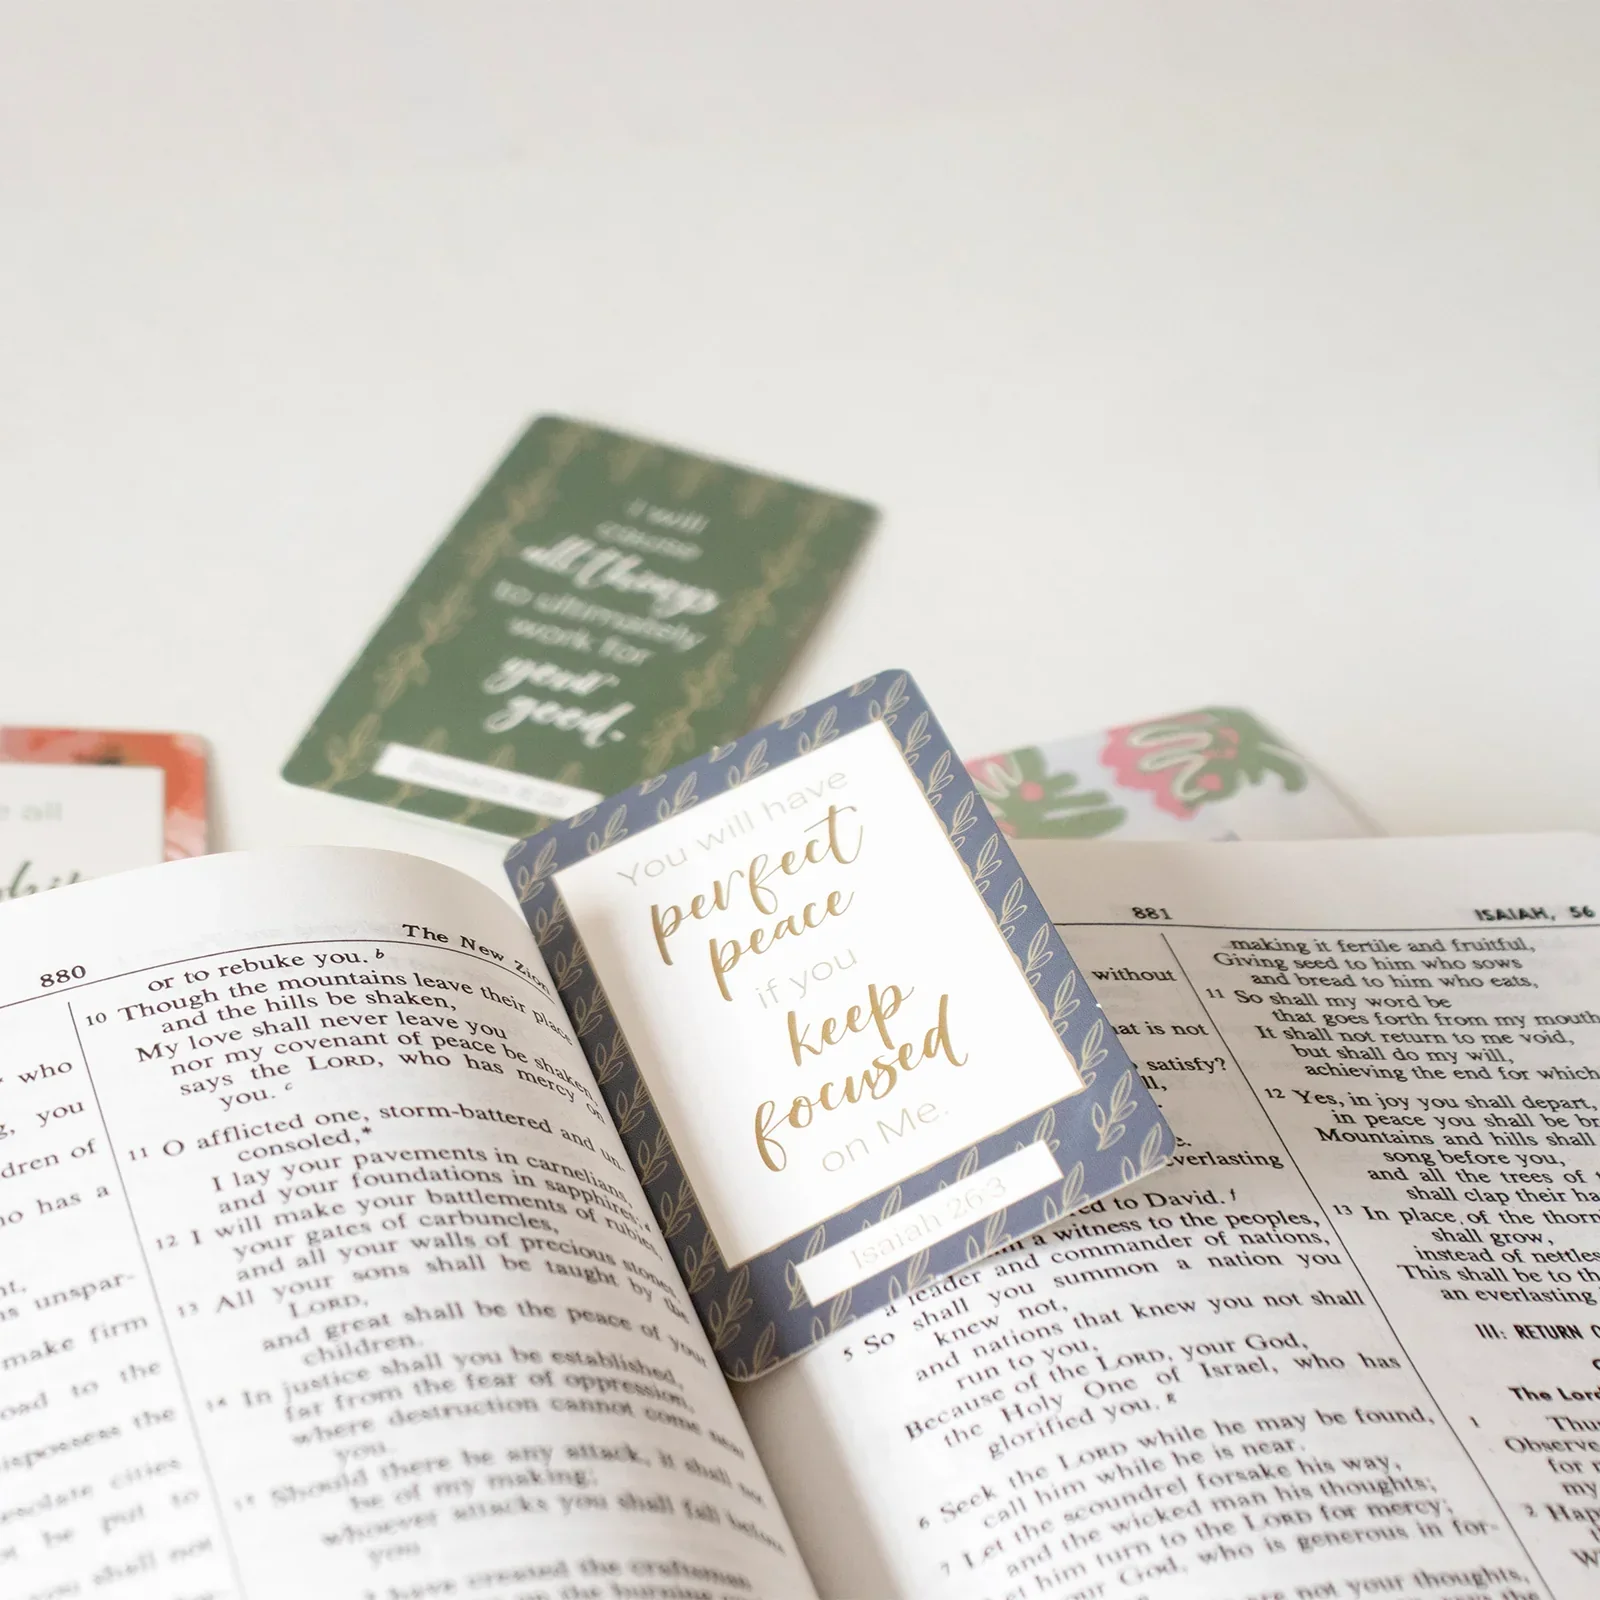 I will
cause
all things
to ultimately
work for
your
good.
e all
You will have
perfect
peace
if you
keep
focused
on Me.
Isaiah 26:3
880
The New Zion
or to rebuke you. b
10 Though the mountains leave their place
and the hills be shaken,
My love shall never leave you
nor my covenant of peace be shaken,
says the LORD, who has mercy on
you. c
11 O afflicted one, storm-battered and un-
consoled,*
I lay your pavements in carnelians,
and your foundations in sapphires;
12 I will make your battlements of rubies,
your gates of carbuncles,
and all your walls of precious stones.
13 All your sons shall be taught by the
LORD,
and great shall be the peace of your
children.
14 In justice shall you be established,
far from the fear of oppression,
where destruction cannot come near
you.
15 Should there be any attack, it shall not
be of my making;
whoever attacks you shall fall before
you
I have created the craftsman
who
you
dren of
ho has a
unspar-
make firm
oad to the
the
cities
be put to
you shall not
881
ISAIAH, 56
without
at is not
satisfy?
everlasting
ed to David. f
a witness to the peoples,
a leader and commander of nations,
5 So shall you summon a nation you
knew not,
and nations that knew you not shall
run to you,
Because of the LORD, your God,
the Holy One of Israel, who has
glorified you. g
6 Seek the LORD while he may be found,
call him while he is near.
7 Let the scoundrel forsake his way,
and the wicked man his thoughts;
him turn to the LORD for mercy;
our God, who is generous in for-
are not your thoughts,
making it fertile and fruitful,
Giving seed to him who sows
and bread to him who eats,
11 So shall my word be
that goes forth from my mouth
It shall not return to me void,
but shall do my will,
achieving the end for which
12 Yes, in joy you shall depart,
in peace you shall be br
Mountains and hills shall
song before you,
and all the trees of t
shall clap their ha
13 In place of the thorn
shall grow,
instead of nettles
This shall be to th
an everlasting
III: RETURN O
The Lord
1 Thu
Observe
for
my
2 Hap